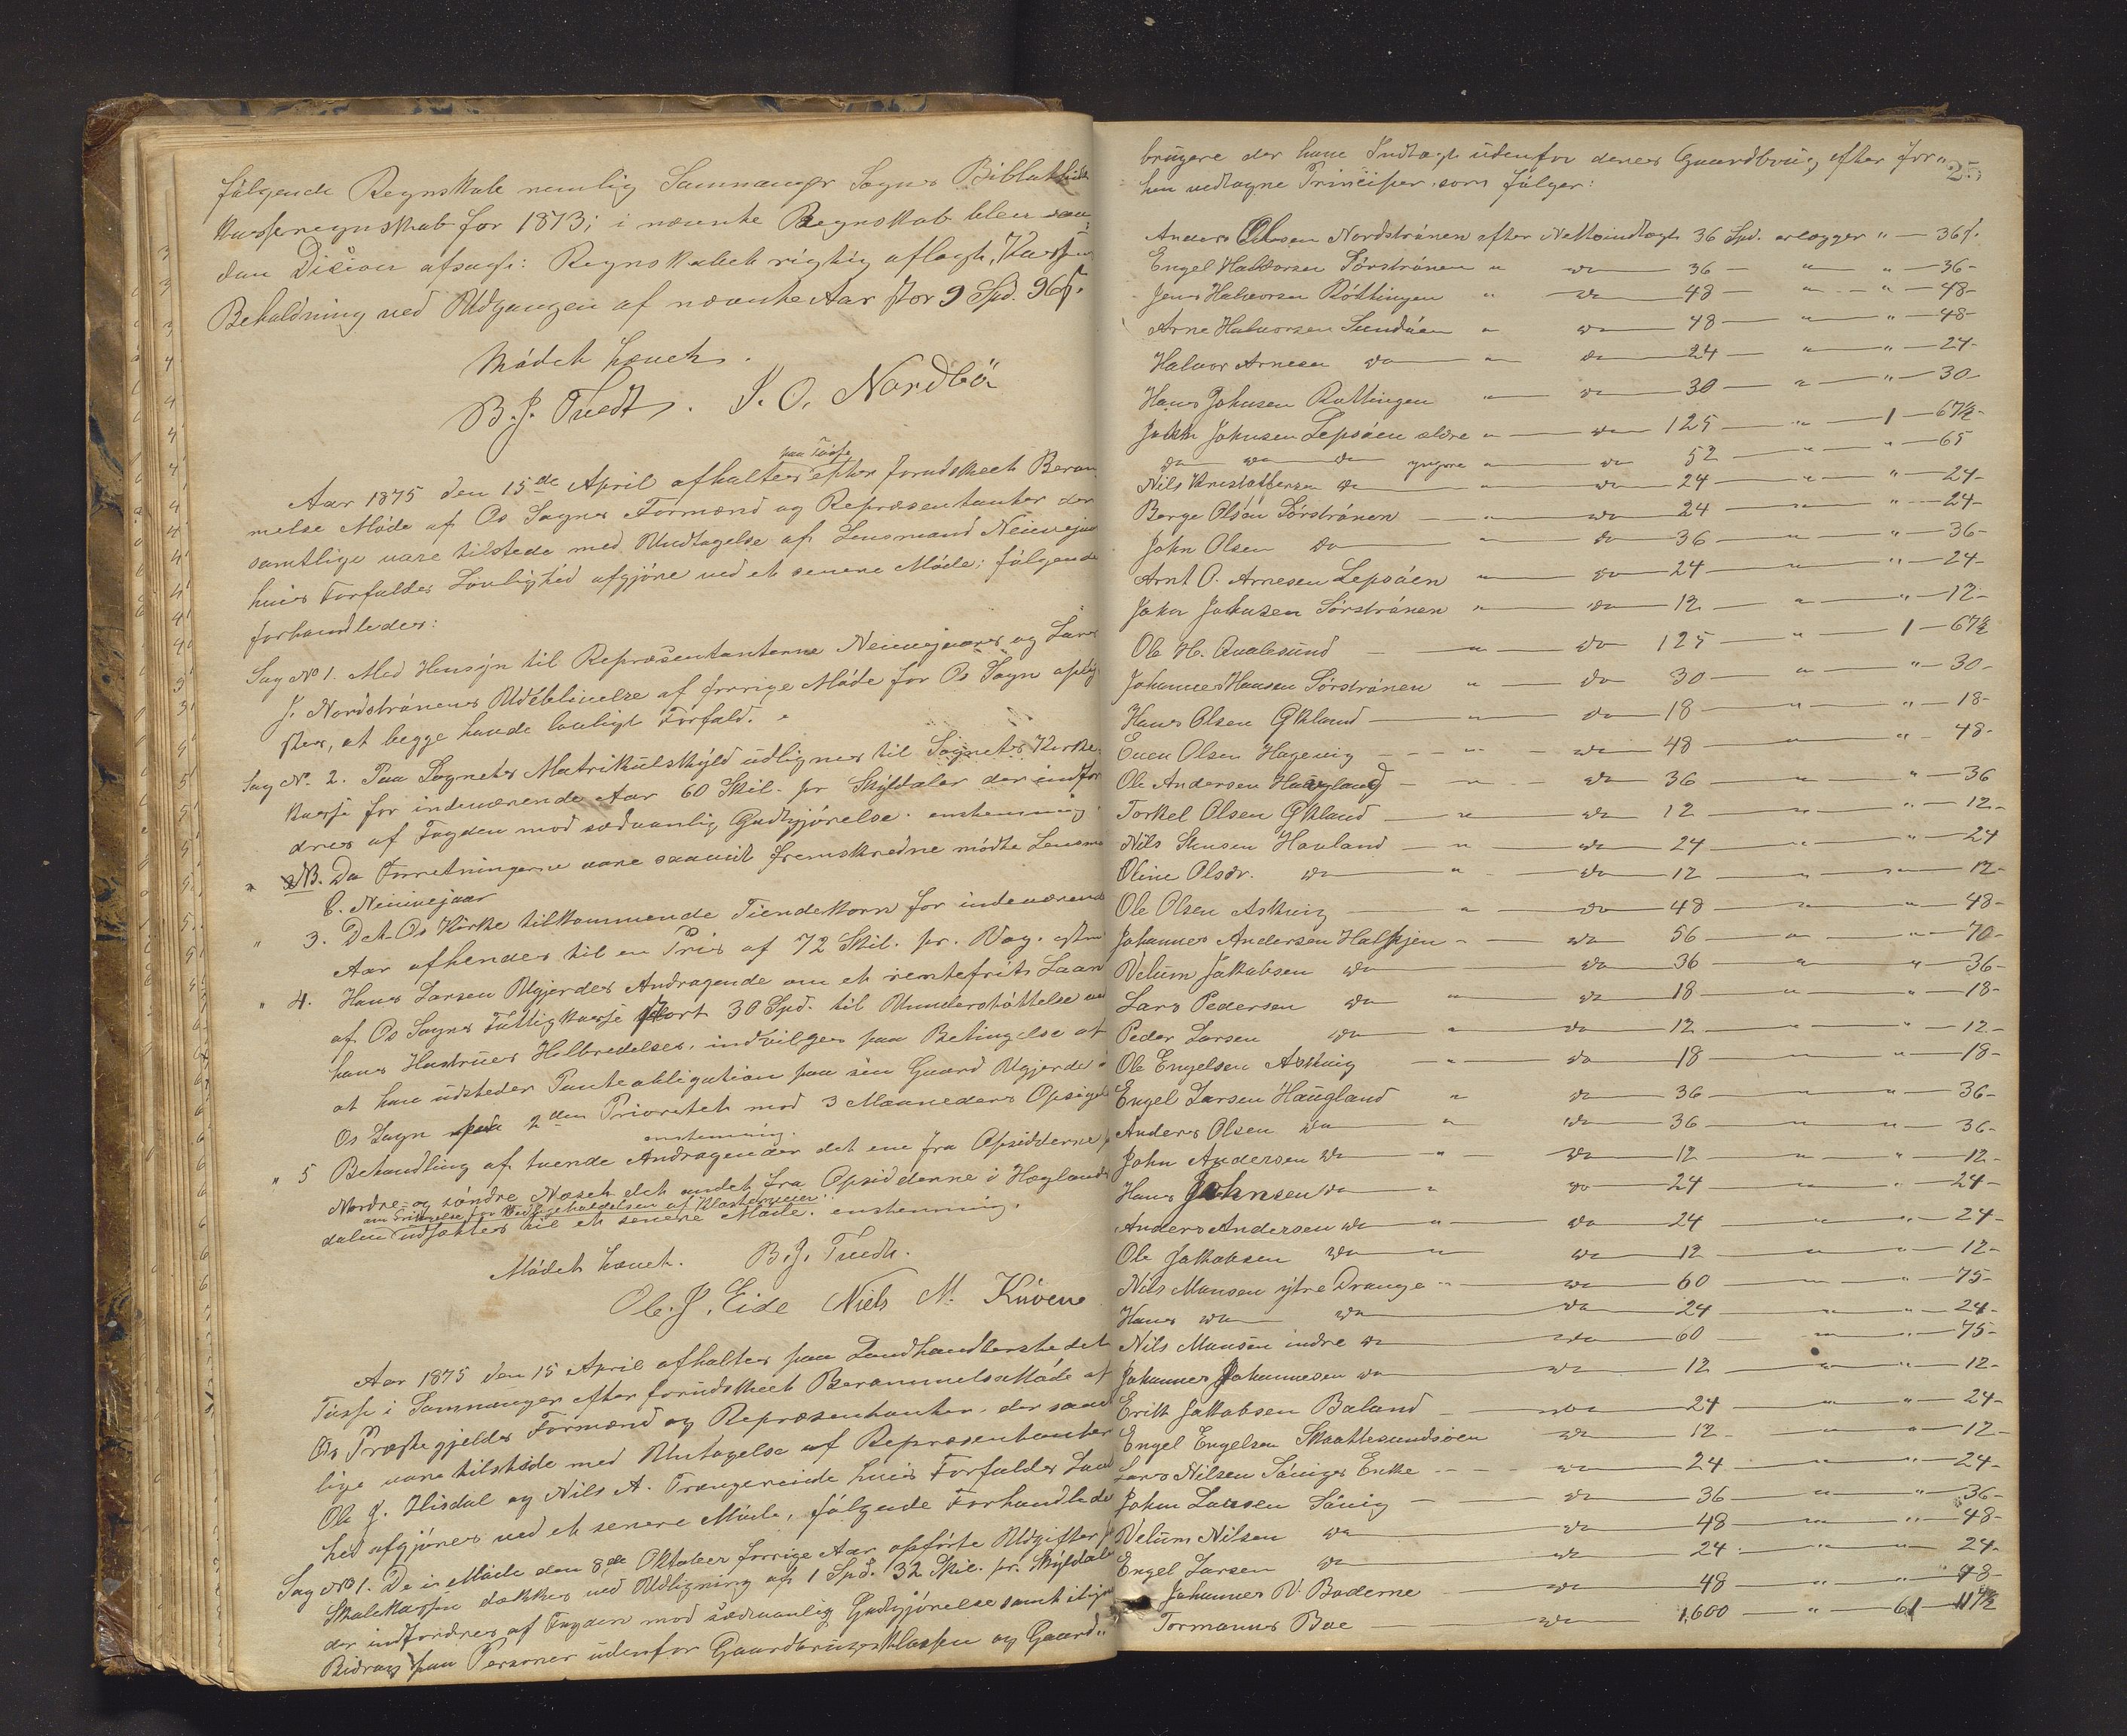 følgende Regnskab nemlig Samnanger Sogns Bibliothek
kasseregnskab for 1873; i nævnte Regnskab blev saa-
dan Dicion afsagt: Regnskabet rigtig aflagt, Kassens
Beholdning ved Udgangen af nævnte Aar stor 9 Spd. 96 s.
Mødet hævet.
B. J. Tvedt. J. O. Nordbø
paa Tøsse
Aar 1875 den 15de April afholtes efter forudskeet Beram-
melse Møde af Os Sogns Formænd og Repræsentanter der
samtlige vare tilstede med Undtagelse af Lensmand Neievejaar
hvis Forfaldes Lovlighed afgjøre ved et senere Møde; følgende
forhandledes:
Sag No 1. Med Hensyn til Repræsentanterne Neievejaares og Lars
J. Nordstrønens Udeblivelse af forrige Møde for Os Sogn oply-
stes, at begge havde lovligt Forfald.
Sag No. 2. Paa Sognets Matrikulskyld udlignes til Sognets Kirke-
kasse for indeværende Aar 60 Skil. pr Skyldaler der indfor
dres af Fogden mod sædvanlig Godtgjørelse. enstemmig.
" NB. Da Forretningerne vare saavidt fremskredne mødte Lensm
C. Neievejaar
" 3. Det Os Kirke tilkommende Tiendekorn for indeværende
Aar afhendes til en Pris af 72 Skil. pr. Vog.
" 4. Hans Larsen Ugjerdes Andragende om et rentefrit Laan
af Os Sogns Fattigkasse stort 30 Spd. til Understøttelse ved
hans Hustrues Helbredelse, indvilges paa Betingelse af
at han udsteder Panteobligation paa sin Gaard Ugjerde i
Os Sogn paa 2den Prioretet mod 3 Maaneders Opsigelse
enstemmig.
" 5 Behandling af tvende Andragender det ene fra Opsidderne p
Nordre- og søndre Næset det andet fra Opsidderne i Hegglands
om Fritagelse for Vedligeholdelsen af
dalen udsattes til et senere Møde. enstemmig.
Mødet hævet. B. J. Tvedt.
Ole. J. Eide Niels N. Kuven
Aar 1875 den 15 April afholtes paa Landhandlerstedet
Tøsse i Samnanger efter forudskeet Berammelse Møde af
Os Præstegjelds Formænd og Repræsentanter, der samt
lige vare tilstede med Untagelse af Repræsentanter
Ole J. Hisdal og Nils A. Trengereide hvis Forfaldes Lovlig
hed afgjøres ved et senere Møde, følgende Forhandledes
Sag No 1. De i Møde den 8de Oktober forrige Aar opførte Udgifter p
Skolekassen dækkes ved Udligning af 1 Spd. 32 Skil. pr. Skyldaler
der indfordres af Fogden mod sædvanlig Godtgjørelse samt ilign
Bidrag paa Personer udenfor Gaardbrugerklassen og Gaard-
25
brugere der have Indtægt udenfor deres Gaardbrug, efter for-
hen vedtagne Principer som følger:
Anders Olesen Nordstrønen efter Nettoindtægt 36 Spd. erlægger " — 36 s.
Engel Halvorsen Sørstrønen " — do — 36 — " — " — 36 -
Jens Halvorsen Røttingen " — do — 48 — " — " — 48 -
Arne Halvorsen Sundøen " — do — 48 — " — " — 48 -
Halvor Arnesen do — " — do — 24 — " — " — 24 -
Hans Johnsen Røttingen " — do — 30 — " — " — 30 -
John Johnsen Lepsøen eldre " — do — 125 — " — 1 — 67½ -
do do do yngre " — do — 52 — " — " — 65
Nils Kristoffersen do " — do — 24 — " — " — 24 -
Børge Olsen Sørstrønen — " — do — 24 — " — " — 24 -
John Olsen do — " — do — 36 — " — " — 36 -
Arnt O. Arnesen Lepsøen " — do — 24 — " — " — 24 -
John Johnsen Sørstrønen " — do — 12 — " — " — 12 -
Ole H. Qvalesund — " — do — 125 — " — 1 — 67½
Johannes Hansen Sørstrønen " — do — 30 — " — " — 30 -
Hans Olsen Økland — " — do — 18 — " — " — 18 -
Even Olsen Hagevig — " — do — 48 — " — " — 48 -
Ole Andersen Haugland — " — do — 36 — " — " — 36
Torkel Olsen Økland — " — do — 12 — " — " — 12 -
Nils Hansen Hauland — " — do — 24 — " — " — 24
Oline Olsdr. do " — do — 12 — " — " — 12 -
Ole Olsen Askvig — " — do — 48 — " — " — 48 -
Johannes Andersen Halhjem " — do — 56 — " — " — 70 -
Velum Jakobsen do — do — 36 — " — " — 36 -
Lars Pedersen do " — do — 18 — " — " — 18 -
Peder Larsen do " — do — 12 — " — " — 12 -
Ole Engelsen Askvig — " — do — 18 — " — " — 18 -
Engel Larsen Haugland " — do — 36 — " — " — 36 -
Anders Olsen do " — do — 36 — " — " — 36 -
John Andersen do " — do — 12 — " — " — 12 -
Hans Johnsen do " — do — 24 — " — " — 24 -
Anders Andersen do " — do — 24 — " — " — 24 -
Ole Jakobsen do " — do — 12 — " — " — 12 -
Nils Monsen ytre Drange " — do — 60 — " — " — 75 -
Hans do do — do — 24 — " — " — 24 -
Nils Monsen indre do — do — 60 — " — " — 75 -
Johannes Johannesen do — do — 12 — " — " — 12 -
Erik Jakobsen Boland — do — 24 — " — " — 24 -
Engel Engelsen Skaatesundsøen do — 12 — " — " — 12 -
Lars Nilsen Søvigs Enke — do — 24 — " — " — 24 -
John Larsen Søvig — do — 36 — " — " — 36 -
Velum Nilsen do — do — 48 — " — " — 48 -
Engel Larsen do — do — 24 — " — " — 24 -
Johannes V. Boderne — do — 48 — " — " — 48 -
Tormanus Boe — do — 1,600 — " — 61 — 117½